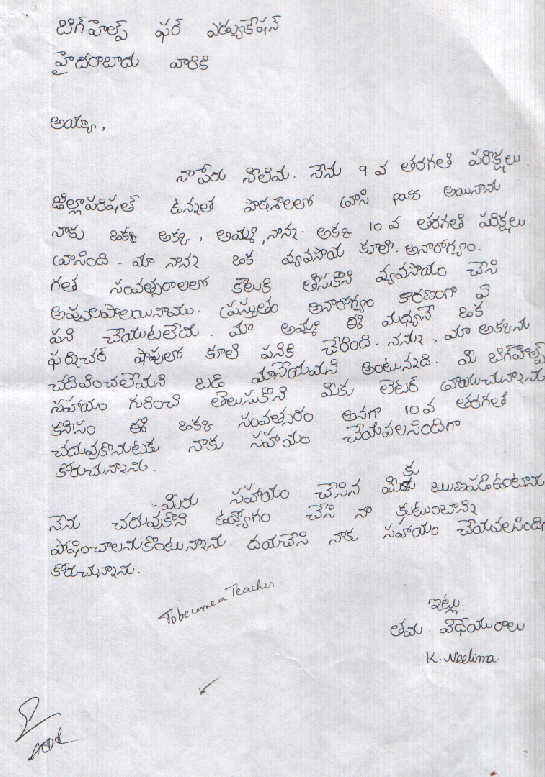 బిగ్‌హెల్ప్ ఫర్ ఎడ్యుకేషన్
హైదరాబాదు వారికి
అయ్యా,
నాపేరు నీలిమ. నేను 9 వ తరగతి పరీక్షలు
జిల్లాపరిషత్ ఉన్నత పాఠశాలలో వ్రాసి అయినాను
నాకు ఒక్క అక్క, అమ్మ, నాన్న. అక్క 10 వ తరగతి పరీక్షలు
వ్రాసింది. మా నాన్న ఒక వ్యవసాయ కూలి. అనారోగ్యం.
గత సంవత్సరాలలో కౌలుకి తీసుకొని వ్యవసాయం చేసి
అప్పులపాలయినాము. ప్రస్తుతం అనారోగ్యం కారణంగా ఏ
పని చేయుటలేదు. మా అమ్మ ఈ మధ్యనే ఒక
ఫర్నిచర్ షాపులో కూలి పనికి చేరింది. నన్ను, మా అక్కను
చదివించలేమని బడి మానేయమని అంటున్నది. మీ బిగ్‌హెల్ప్
సహాయం గురించి తెలుసుకొని మీకు లెటర్ వ్రాయుచున్నాను
కనీసం ఈ ఒక్క సంవత్సరం అనగా 10 వ తరగతి
చదువుకొనుటకు నాకు సహాయం చేయవలసిందిగా
కోరుచున్నాను.
మీరు సహాయం చేసిన మీకు ఋణపడిఉంటాను
నేను చదువుకొని ఉద్యోగం చేసి నా కుటుంబాన్ని
పోషించాలనుకొంటున్నాను దయచేసి నాకు సహాయం చేయవలసిందిగా
కోరుచున్నాను.
To become a Teacher
ఇట్లు
తమ విధేయురాలు
K. Neelima